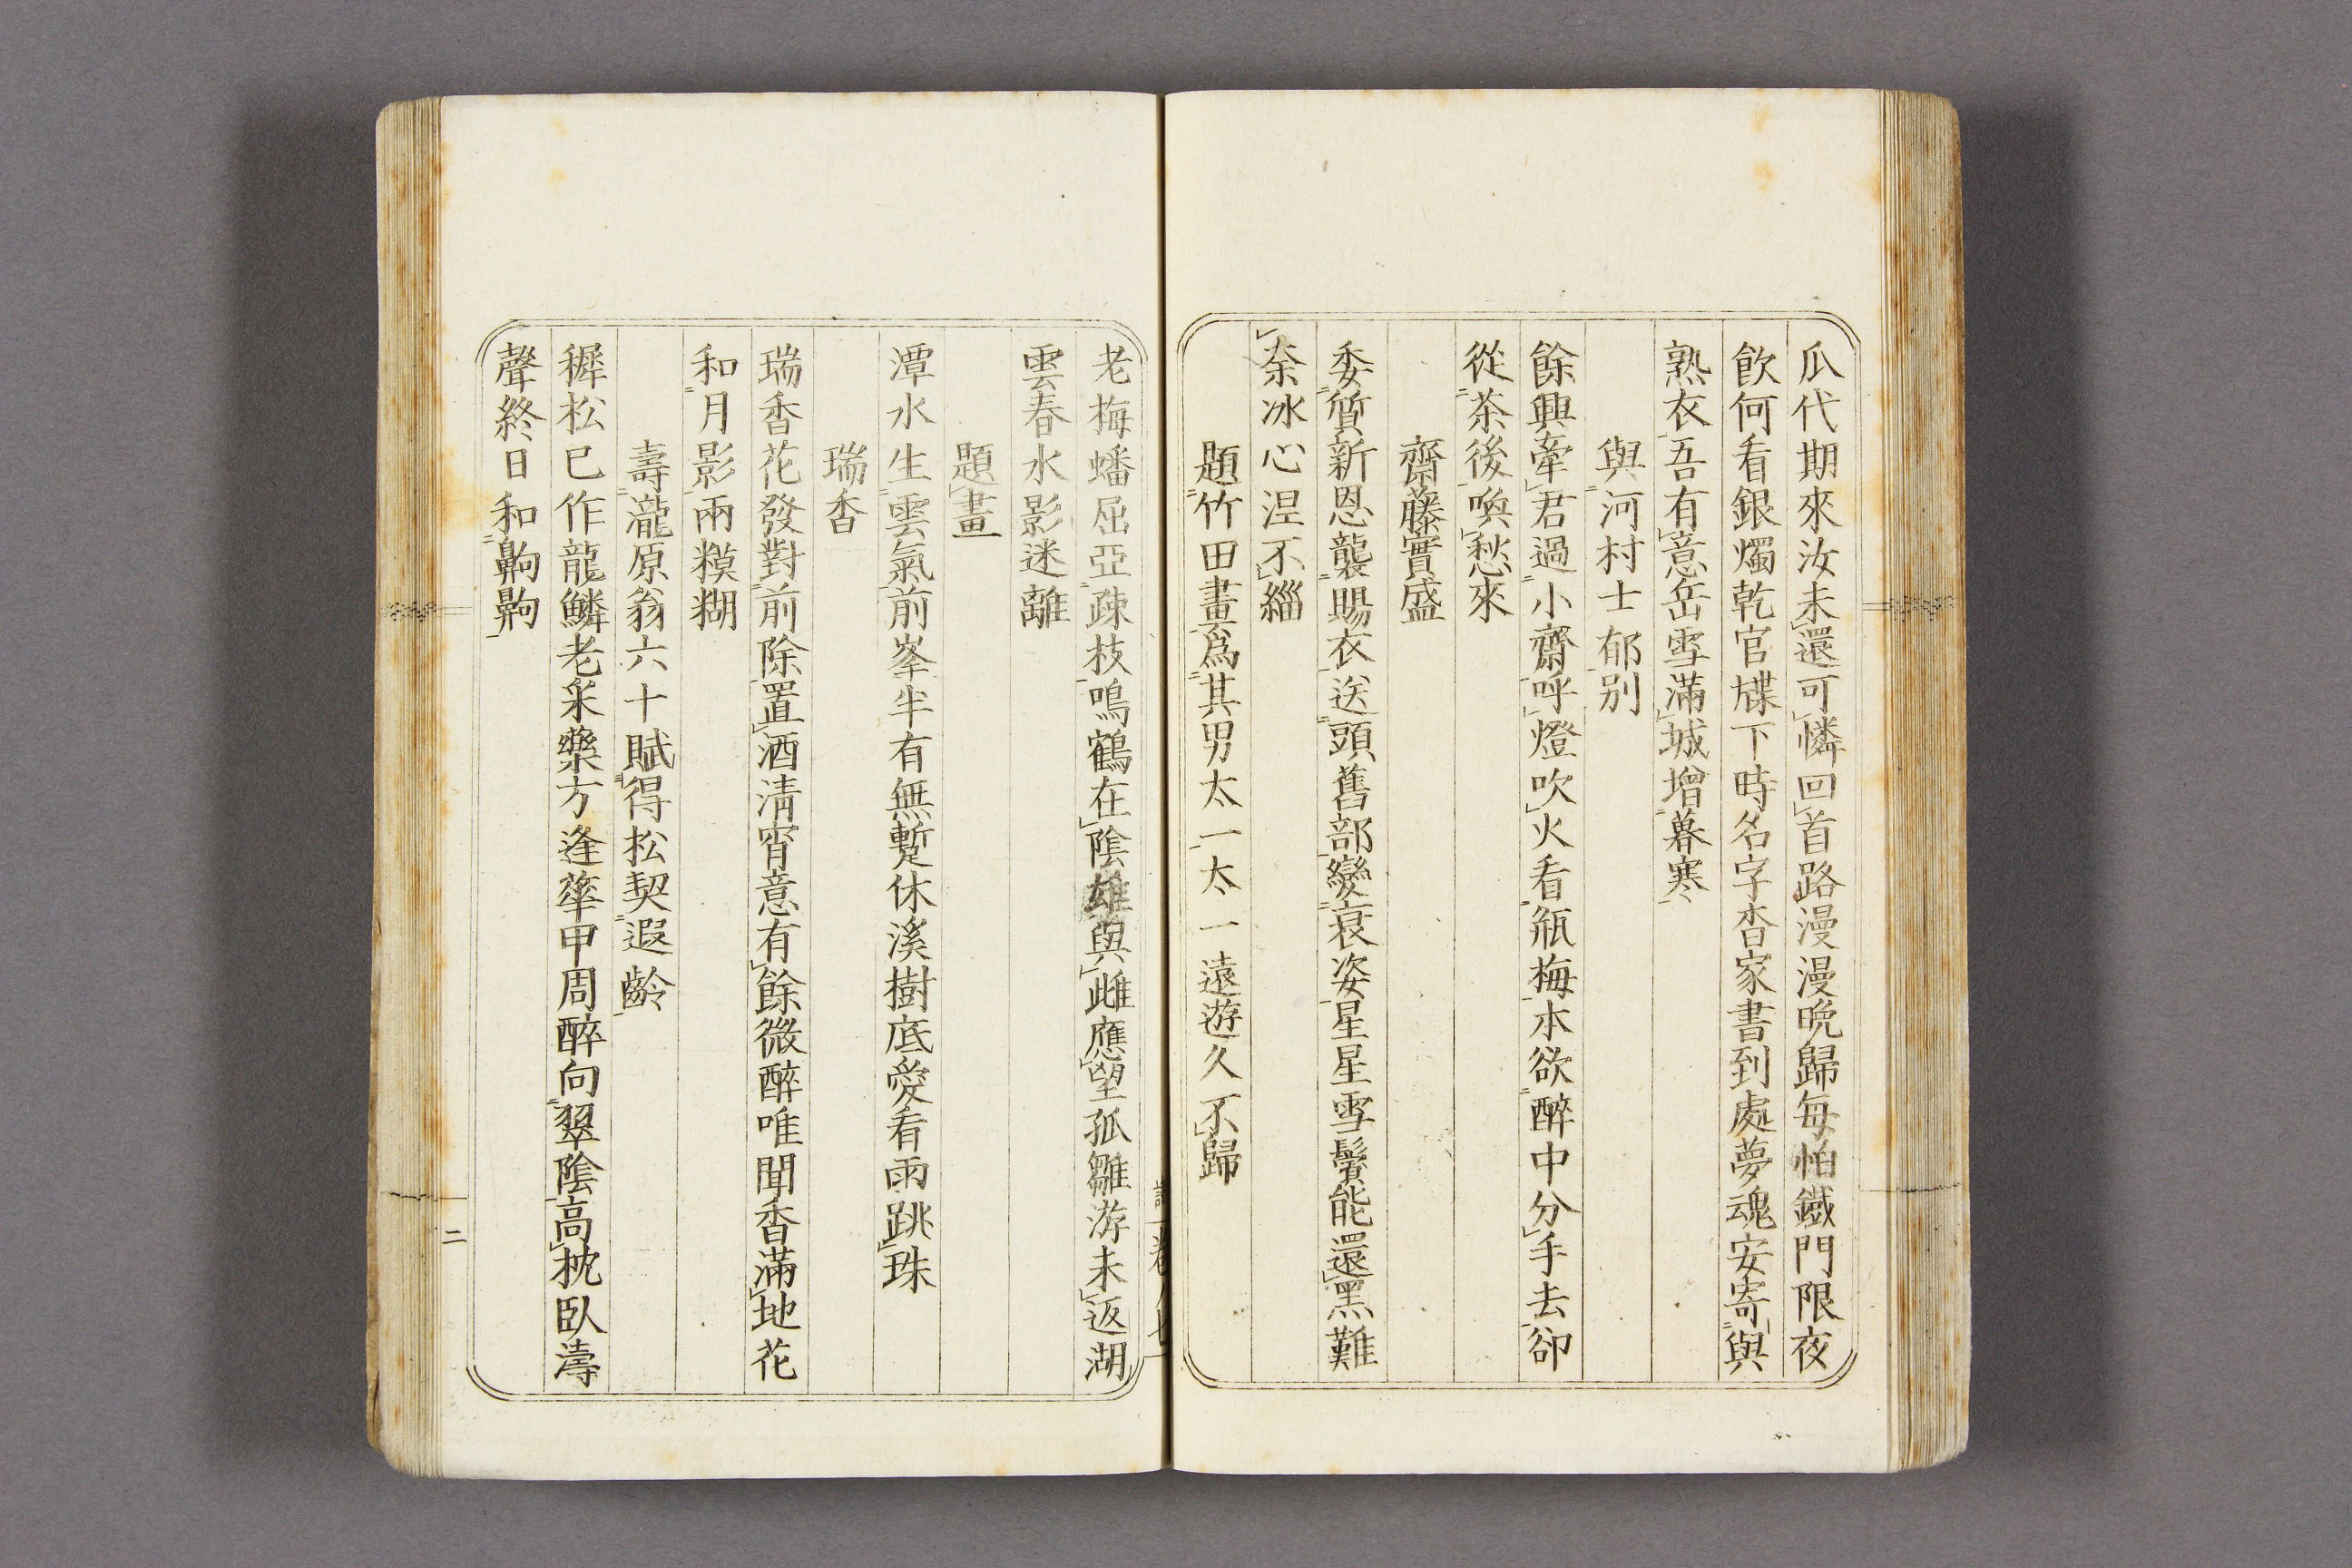 瓜代期來汝未還可憐回首路漫漫晩歸每怕鐵門限夜
飮何看銀燭乾官牒下時名字杳家書到處夢魂安寄與
熟衣吾有意岳雪滿城增暮寒
與河村士郁別
餘興牽君過小齋呼燈吹火看瓶梅本欲醉中分手去卻
從茶後喚愁來
齋藤實盛
委質新恩襲賜衣送頭舊部變衰姿星星雪鬢能還黑難
奈冰心涅不緇
題竹田畫爲其男太一太一遠遊久不歸
老梅蟠屈亞疎枝鳴鶴在陰雄與雌應望孤雛游未返湖
雲春水影迷離
題畫
潭水生雲氣前峯半有無暫休溪樹底愛看雨跳珠
瑞香
瑞香花發對前除置酒淸宵意有餘微醉唯聞香滿地花
和月影兩糢糊
壽瀧原翁六十賦得松契遐齡
穉松已作龍鱗老采藥方逢華甲周醉向翠陰高枕臥濤
聲終日和齁齁
二